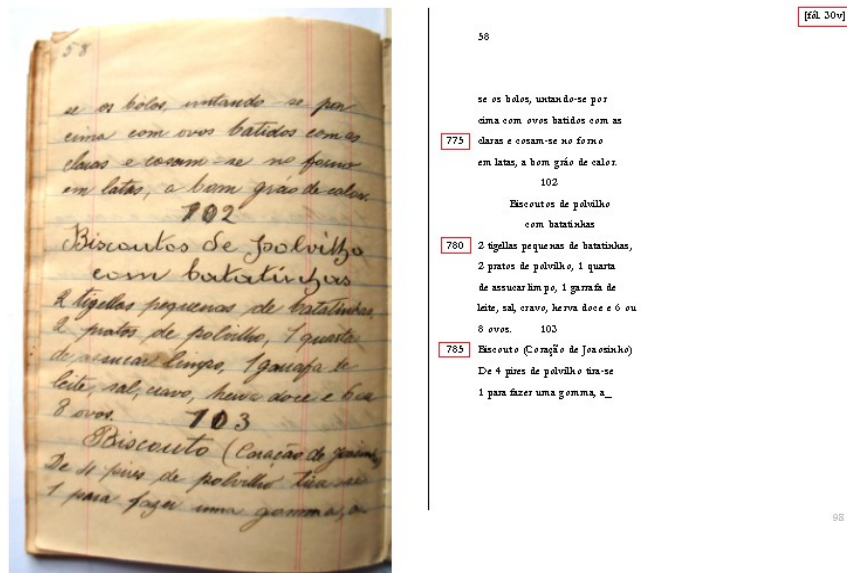 58
se os bolos, untando-se por
cima com ovos batidos com as
claras e cosam-se no forno
em latas, a bom gráo de calor.
102
Biscoutos de polvilho
com batatinhas
2 tigellas pequenas de batatinhas,
2 pratos de polvilho, 1 quarta
de assucar limpo, 1 garrafa de
leite, sal, cravo, herva doce e 6 ou
8 ovos.
103
Biscouto (Coração de Joasinho)
De 4 pires de polvilho tira-se
1 para fazer uma gomma, a
[fól. 30v]
58
se os bolos, untando-se por
cima com ovos batidos com as
775 claras e cosam-se no forno
em latas, a bom gráo de calor.
102
Biscoutos de polvilho
com batatinhas
780 2 tigellas pequenas de batatinhas,
2 pratos de polvilho, 1 quarta
de assucar limpo, 1 garrafa de
leite, sal, cravo, herva doce e 6 ou
8 ovos. 103
785 Biscouto (Coração de Joaosinho)
De 4 pires de polvilho tira-se
1 para fazer uma gomma, a_
98